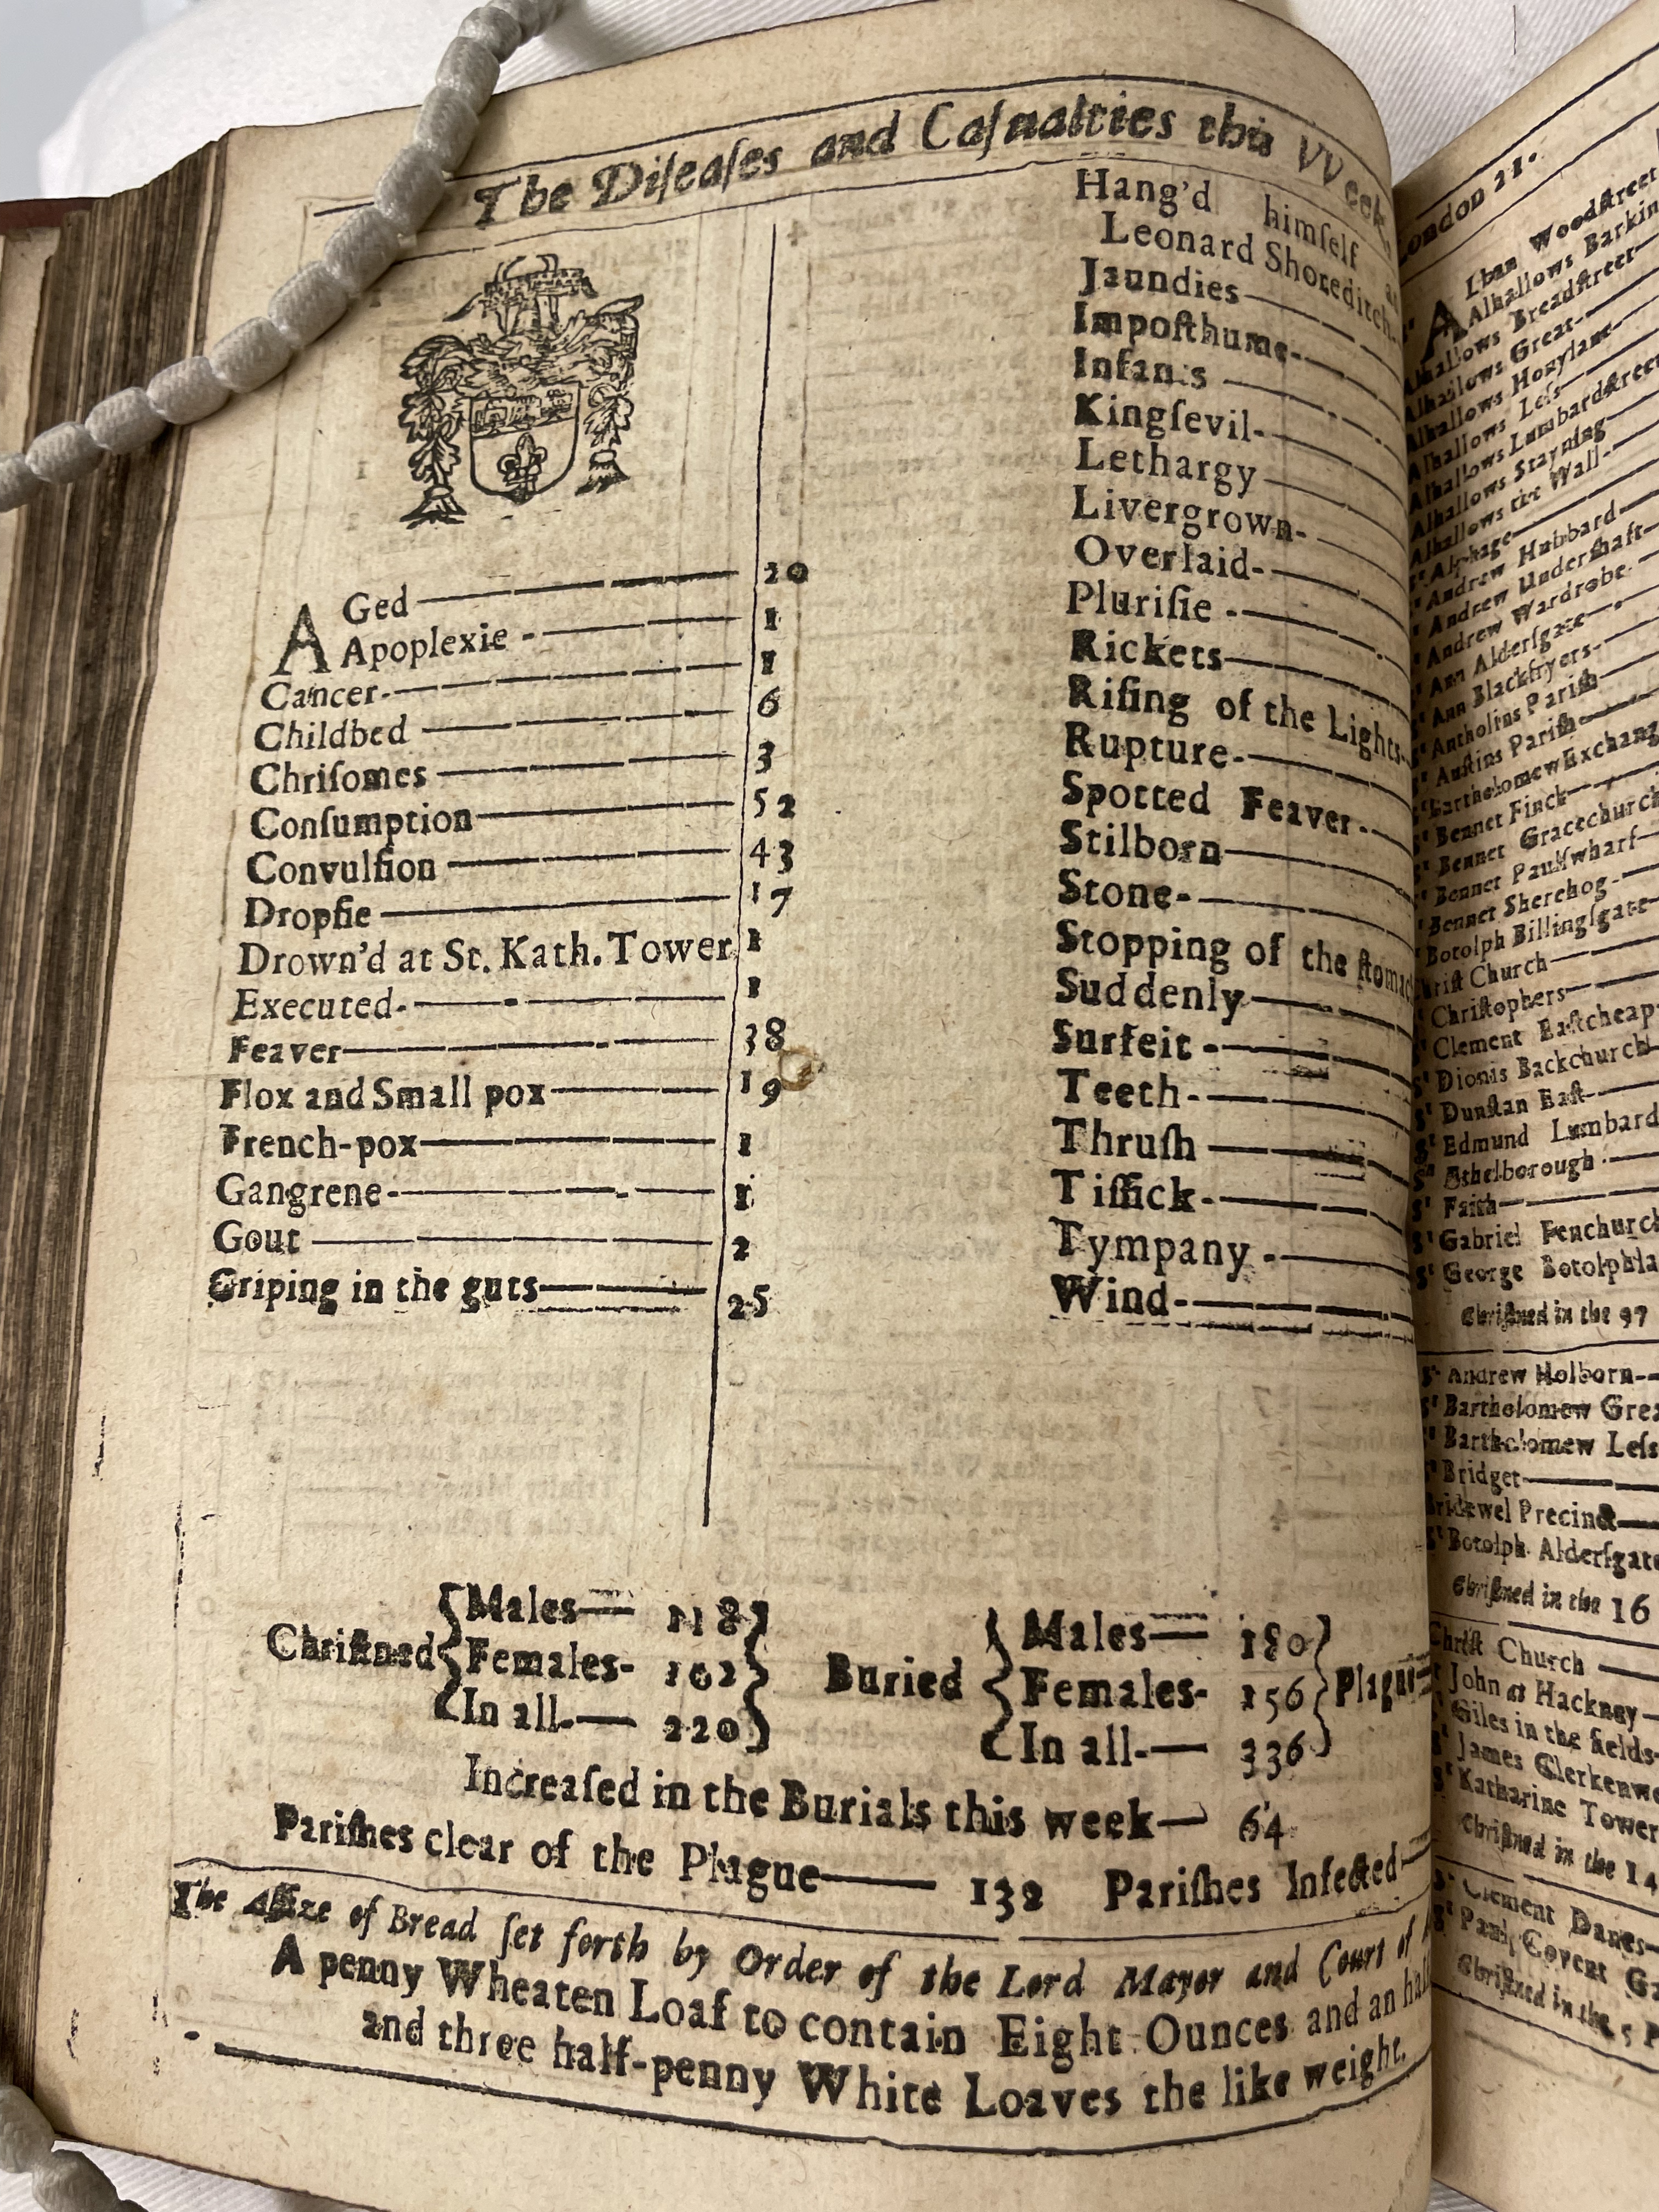 The Diſeaſes and Caſualties this VVeek.
AGed 20
Apoplexie 1
Cancer 1
Childbed 6
Chriſomes 3
Conſumption 52
Convulſion 43
Dropſie 17
Drown'd at St. Kath. Tower 1
Executed 1
Feaver 38
Flox and Small pox 19
French-pox 1
Gangrene 1
Gout 2
Griping in the guts 25
Hang'd himſelf
Leonard Shoreditch
Jaundies
Impoſthume
Infants
Kingſevil
Lethargy
Livergrown
Overlaid
Pluriſie
Rickets
Riſing of the Lights
Rupture
Spotted Feaver
Stilborn
Stone
Stopping of the
Suddenly
Surfeit
Teeth
Thruſh
Tiſſick
Tympany
Wind
Chriſtned
Males 118
Females 102
In all 220
Buried
Males 180
Females 156
In all 336
Increaſed in the Burials this week 64
Pariſhes clear of the Plague 132 Pariſhes Infected
The Aſſize of Bread ſet forth by Order of the Lord Mayor and Court of
A penny Wheaten Loaf to contain Eight Ounces and an
and three half-penny White Loaves the like weight.
London 21.
Alban Woodſtreet
Alhallows
Alhallows Breadſtreet
Alhallows Great
Alhallows Honylane
Alhallows Leſs
Alhallows Lumbardſtreet
Alhallows Stayning
Alhallows the Wall
Alphage
Andrew Hubbard
Andrew Underſhaft
Andrew Wardrobe
Ann Alderſgate
Ann Blackfryers
Antholins Pariſh
Auſtins Pariſh
Bartholomew
Bennet Finck
Bennet Gracechurch
Bennet Paulſwharf
Bennet Sherehog
Botolph Billingſgate
Church
Chriſtophers
Clement Eaſtcheap
Dionis Backchurch
Dunſtan Eaſt
Edmund Lumbard
Ethelborough
Faith
Gabriel Fenchurch
George
Chriſtned in the 97
Andrew Holborn
Bartholomew
Bartholomew Leſs
Bridget
Precinct
Botolph Alderſgate
Chriſtned in the 16
Church
John at Hackney
Giles in the fields
James
Katharine Tower
Chriſtned in the 14
Clement Danes
Covent
Chriſtned in the 5